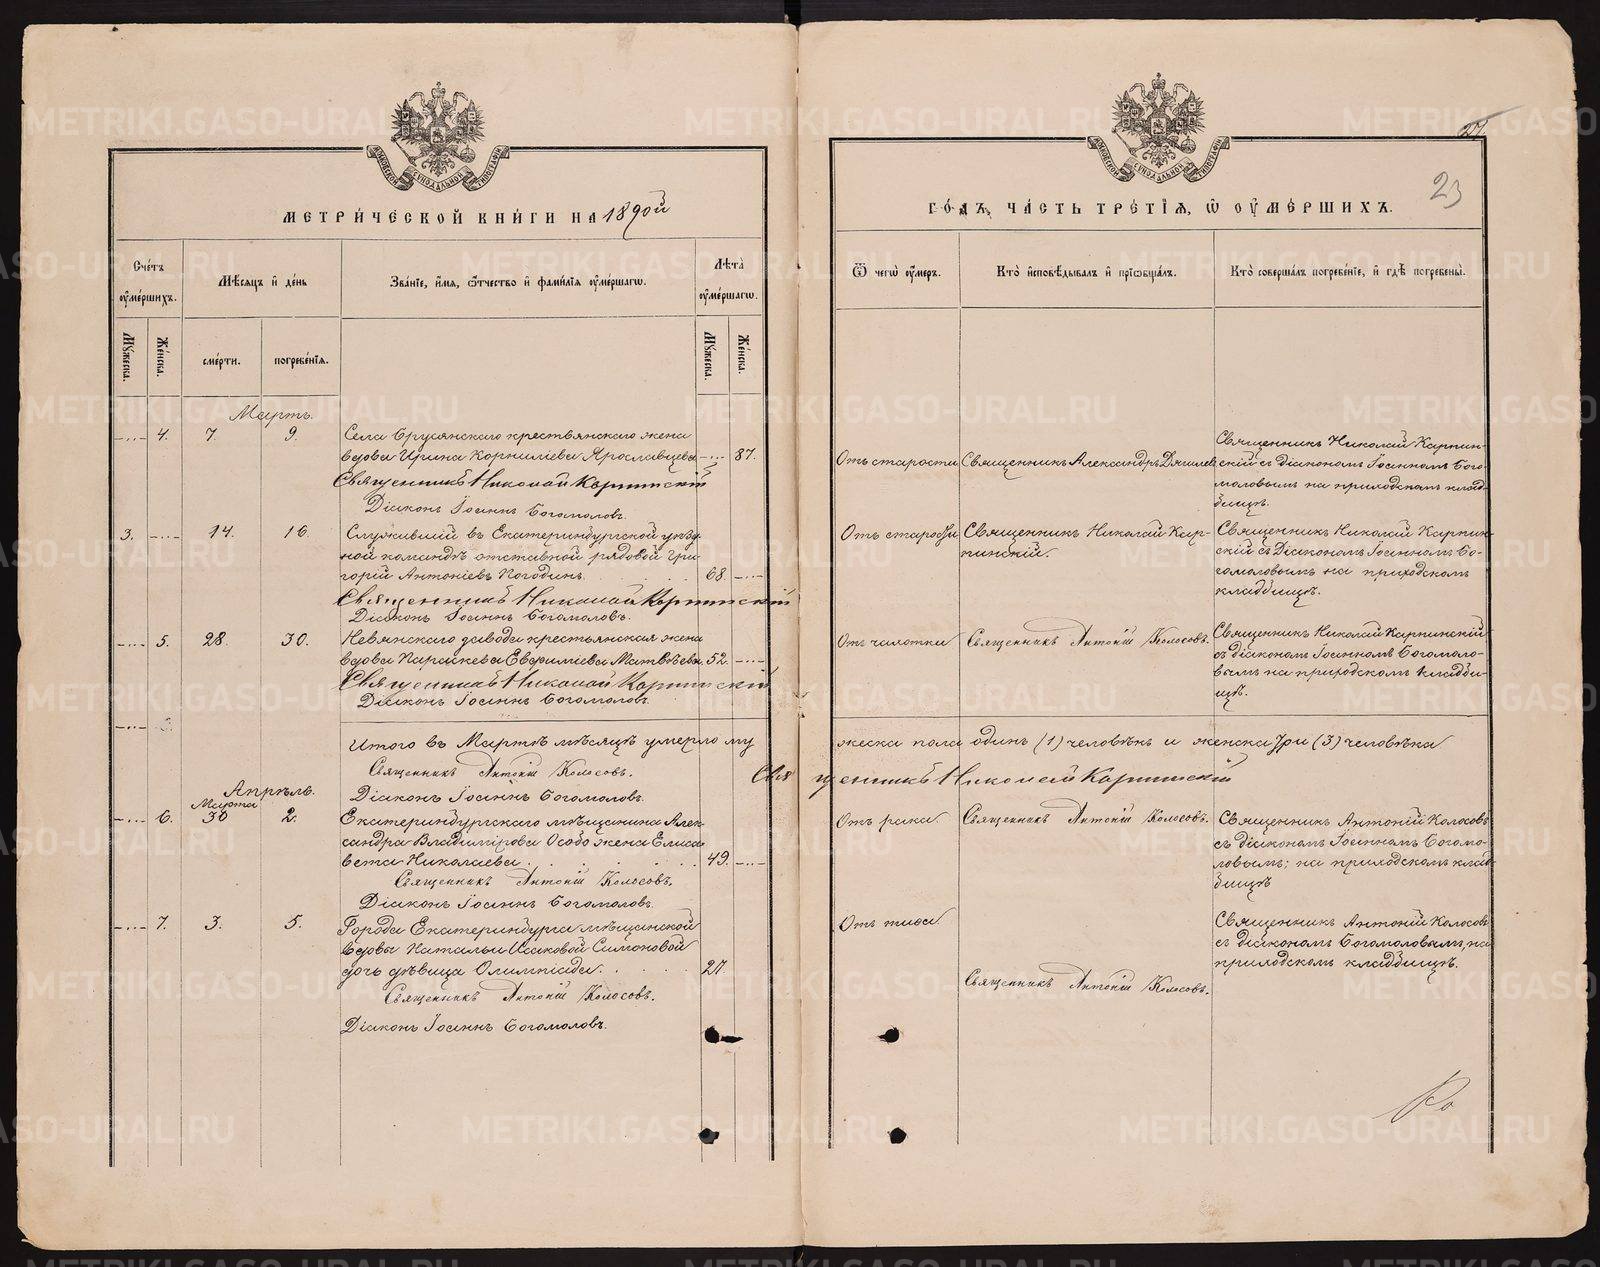 МЕТРИЧЕСКОЙ КНИГИ НА 1890й
Счетъ оумершихъ.
Мужеска.
Женска.
Мѣсяцъ и день
смерти.
погребенїя.
Званїе, имя, отчество и фамилїя оумершагѡ.
Лѣта оумершагѡ.
Мужеска.
Женска.
Мартъ.
4. 7. 9. Села Брусянскаго крестьянскаго жена
вдова Ирина Корнилiева Ярославцева 87.
Священникъ Николай Карпинскiй
Дiаконъ Iоаннъ Богомоловъ.
3. 14. 16. Служившiй въ Екатеринбургской уѣзд-
ной командѣ отставной рядовой Гри-
горiй Антонiевъ Погодинъ. 68.
Священникъ Николай Карпинскiй
Дiаконъ Iоаннъ Богомоловъ.
5. 28. 30. Невянскаго завода крестьянская жена
вдова Параскева Евфимiева Матвѣева 52.
Священникъ Николай Карпинскiй
Дiаконъ Iоаннъ Богомоловъ.
Итого въ Мартѣ мѣсяцѣ умерло му
Священникъ Антонiй Колосовъ. Свя
Апрѣль.
Дiаконъ Iоаннъ Богомоловъ.
Марта
6. 30 2. Екатеринбургскаго мѣщанина Алек-
сандра Владимiрова жена Елиса
вета Николаева. 49.
Священникъ Антонiй Колосовъ.
Дiаконъ Iоаннъ Богомоловъ.
7. 3. 5. Города Екатеринбурга мѣщанской
вдовы Натальи Исаковой Симоновой
дочь дѣвица Олимпiада. 27.
Священникъ Антонiй Колосовъ.
Дiаконъ Iоаннъ Богомоловъ.
23
ГОДЪ, ЧАСТЬ ТРЕТIЯ, Ѡ ОУМЕРШИХЪ.
Ѿ чегѡ оумеръ.
Кто исповѣдывалъ и прїѡбщалъ.
Кто совершалъ погребенїе, и гдѣ погребены.
Отъ старости
Священникъ Александръ Дягилевъ
Священникъ Николай Карпин-
скiй съ дiакономъ Iоанномъ Бого-
моловымъ на приходскомъ клад-
бищѣ.
Отъ старости
Священникъ Николай Кар-
пинскiй.
Священникъ Николай Карпин-
скiй съ Дiакономъ Iоанномъ Бо-
гомоловымъ на приходскомъ
кладбищѣ.
Отъ чахотки
Священникъ Антонiй Колосовъ.
Священникъ Николай Карпинскiй
съ дiакономъ Iоанномъ Богомоло-
вымъ на приходскомъ кладби-
щѣ.
жеска пола одинъ (1) человѣкъ и женска три (3) человѣка
щенникъ Николай Карпинскiй
Отъ рака
Священникъ Антонiй Колосовъ.
Священникъ Антонiй Колосовъ
съ дiакономъ Iоанномъ Богомо-
ловымъ; на приходскомъ клад-
бищѣ
Отъ тифа
Священникъ Антонiй Колосовъ.
Священникъ Антонiй Колосовъ
съ дiакономъ Богомоловымъ, на
приходскомъ кладбищѣ.
METRIKI.GASO-URAL.RU